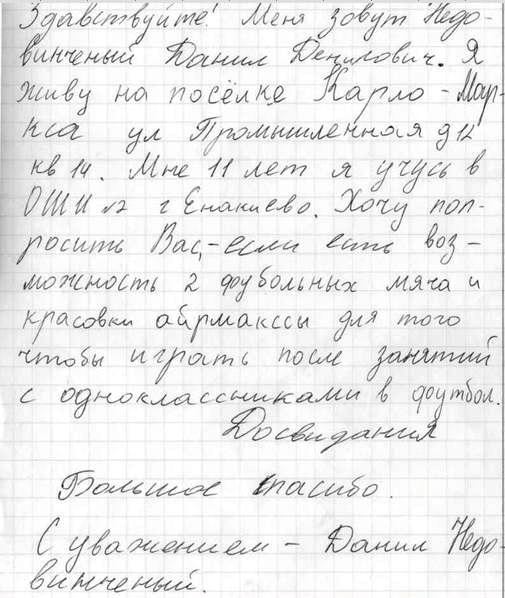 Здавствуйте! Меня зовут Недо-
винченый Данил Денилович. Я
живу на посёлке Карло-Мар-
кса ул Промышленная д12
кв 14. Мне 11 лет я учусь в
ОШИ №2 г Енакиево. Хочу поп-
росить Вас,-если есть воз-
можность 2 футбольных мяча и
красовки айрмакссы для того
чтобы играть после занятий
с одноклассниками в футбол.
Досвидания
Большое спасибо.
С уважением - Данил Недо-
винченый.